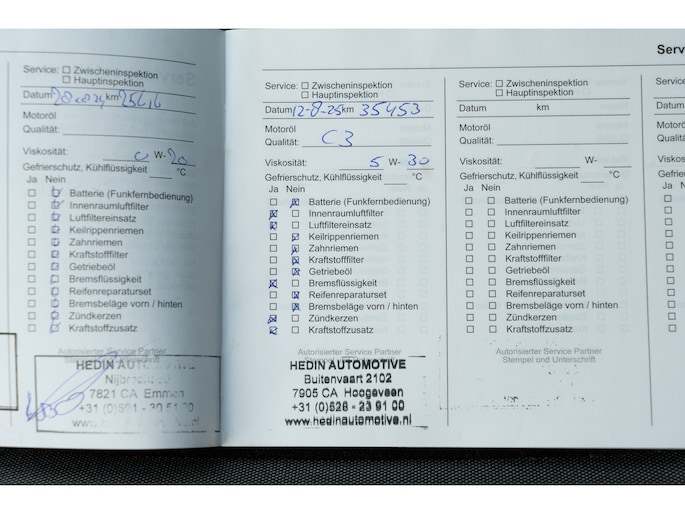 Serv
Service: ☐ Zwischeninspektion
☐ Hauptinspektion
Datum km
Motoröl
Qualität:
Viskosität: 0 W- 20
Gefrierschutz, Kühlflüssigkeit °C
Ja Nein
Batterie (Funkfernbedienung)
Innenraumluftfilter
Luftfiltereinsatz
Keilrippenriemen
Zahnriemen
Kraftstofffilter
Getriebeöl
Bremsflüssigkeit
Reifenreparaturset
Bremsbeläge vorn / hinten
Zündkerzen
Kraftstoffzusatz
Autorisierter Service Partner
Stempel und Unterschrift
HEDIN
7821 CA Emmen
Service: ☐ Zwischeninspektion
☐ Hauptinspektion
Datum 12-8-25 km 35453
Motoröl
Qualität: C3
Viskosität: 5 W- 30
Gefrierschutz, Kühlflüssigkeit °C
Ja Nein
Batterie (Funkfernbedienung)
Innenraumluftfilter
Luftfiltereinsatz
Keilrippenriemen
Zahnriemen
Kraftstofffilter
Getriebeöl
Bremsflüssigkeit
Reifenreparaturset
Bremsbeläge vorn / hinten
Zündkerzen
Kraftstoffzusatz
Autorisierter Service Partner
Stempel und Unterschrift
HEDIN AUTOMOTIVE
Buitenvaart 2102
7905 CA Hoogeveen
+31 (0)528 - 23 91 00
www.hedinautomotive.nl
Service: ☐ Zwischeninspektion
☐ Hauptinspektion
Datum km
Motoröl
Qualität:
Viskosität: W-
Gefrierschutz, Kühlflüssigkeit °C
Ja Nein
Batterie (Funkfernbedienung)
Innenraumluftfilter
Luftfiltereinsatz
Keilrippenriemen
Zahnriemen
Kraftstofffilter
Getriebeöl
Bremsflüssigkeit
Reifenreparaturset
Bremsbeläge vorn / hinten
Zündkerzen
Kraftstoffzusatz
Autorisierter Service Partner
Stempel und Unterschrift
Service
Datum
Motoröl
Qualität
Viskos
Gefrier
Ja N